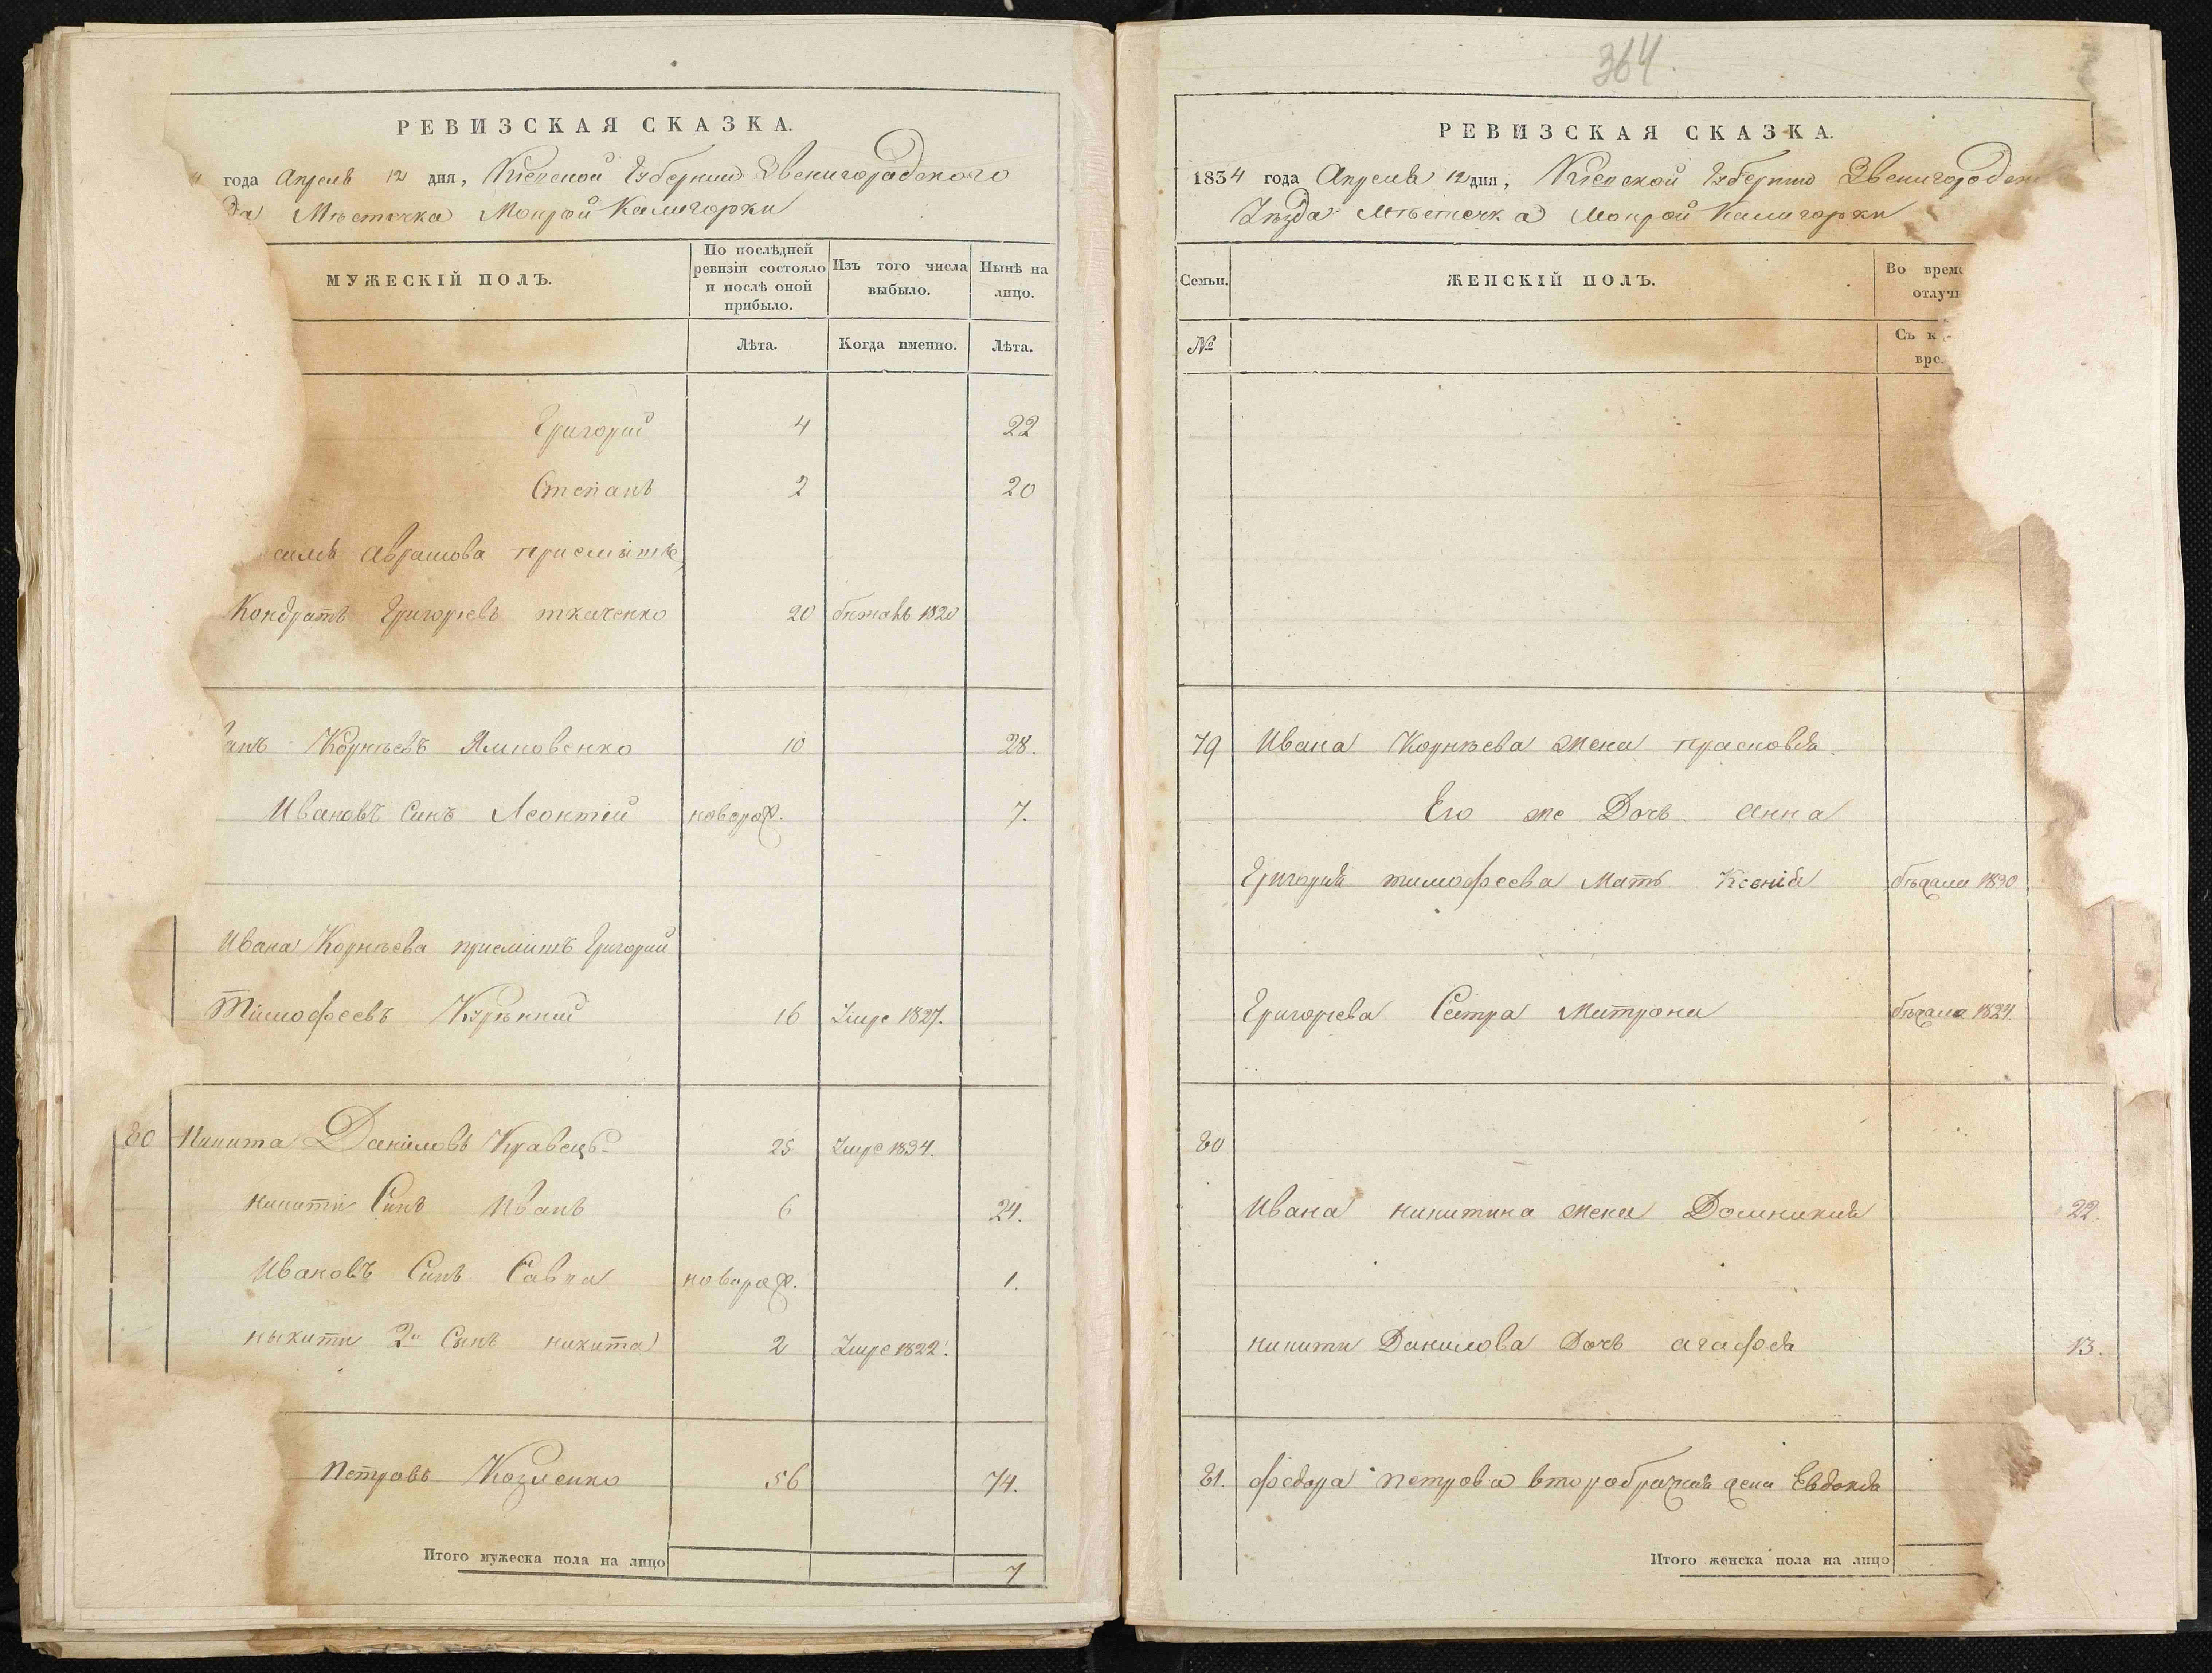 РЕВИЗСКАЯ СКАЗКА.
года Апреля 12 дня, Кіевской Губерніи Звенигородского
Мѣстечка Мокрой Калигорки
МУЖЕСКІЙ ПОЛЪ.
По послѣдней ревизіи состояло и послѣ оной прибыло.
Изъ того числа выбыло.
Нынѣ на лицо.
Лѣта.
Когда именно.
Лѣта.
Григорий 4 22
Степанъ 2 20
Аврамова приемитъ
Кондратъ Григорьевъ ткаченко 20 бежавъ 1820
Корнѣевъ Якновенко 10 28.
Ивановъ Синъ Леонтій новорож. 7.
Ивана Корнѣева приемитъ Григорий
Тимофеевъ 16 Умре 1827.
80 Никита Даниловъ Кравецъ 25 Умре 1834.
никити Синъ Иванъ 6 24.
Ивановъ Синъ Савка новорож. 1.
никити 2й Синъ никита 2 Умре 1822.
Петровъ Козленко 56 74.
Итого мужеска пола на лицо 7
364
РЕВИЗСКАЯ СКАЗКА.
1834 года Апреля 12 дня, Кіевской Губерніи
Уѣзда Мѣстечка Мокрой Калигорки
Семьи.
ЖЕНСКІЙ ПОЛЪ.
Во
№
Съ
79 Ивана Корнѣева жена прасковья
Его же Дочь Анна
Григория тимофеева Мать Ксенія бѣжала 1830
Григорьева Сестра Матрона бѣжала 1824
80
Ивана никитина жена Домникия 22.
никити Данилова Дочь агафья 13.
81. федора петрова второбрачная жена Евдокія
Итого женска пола на лицо